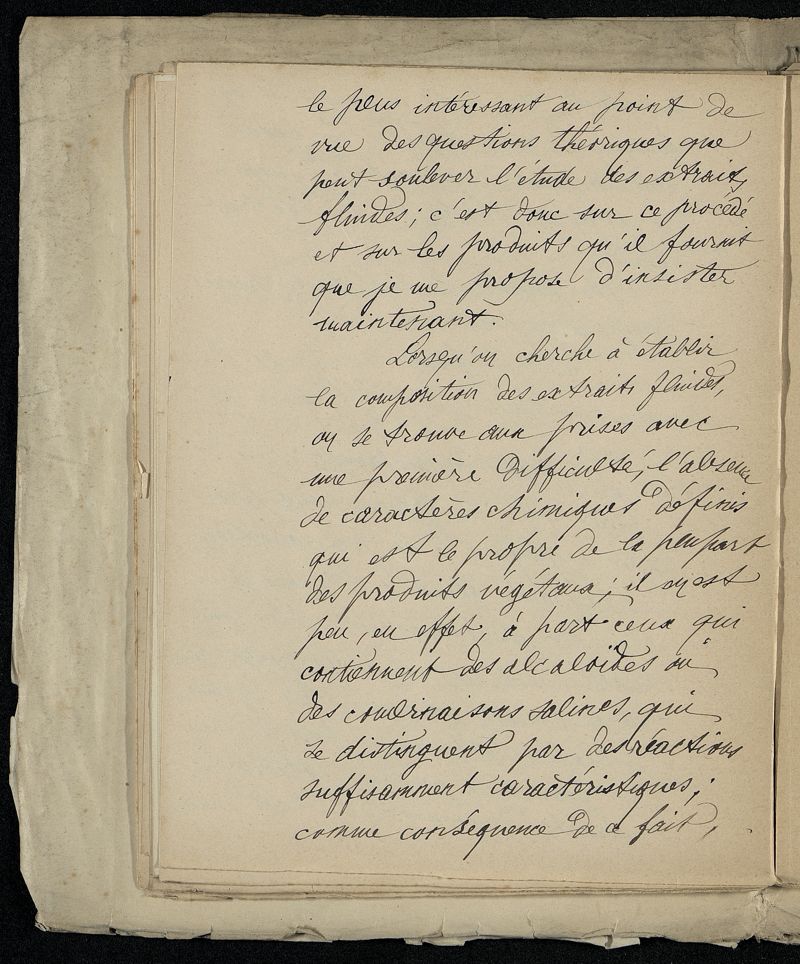 le plus intéressant au point de
vue des questions théoriques que
peut soulever l'étude des extraits
fluides; c'est donc sur ce procédé
et sur les produits qu'il fournit
que je me propose d'insister
maintenant.
Lorsqu'on cherche à établir
la composition des extraits fluides,
on se trouve aux prises avec
une première difficulté, l'absence
de caractères chimiques définis
qui est le propre de la plupart
des produits végétaux; il en est
peu, en effet, à part ceux qui
contiennent des alcaloïdes ou
des combinaisons salines, qui
se distinguent par des réactions
suffisamment caractéristiques;
comme conséquence de ce fait,